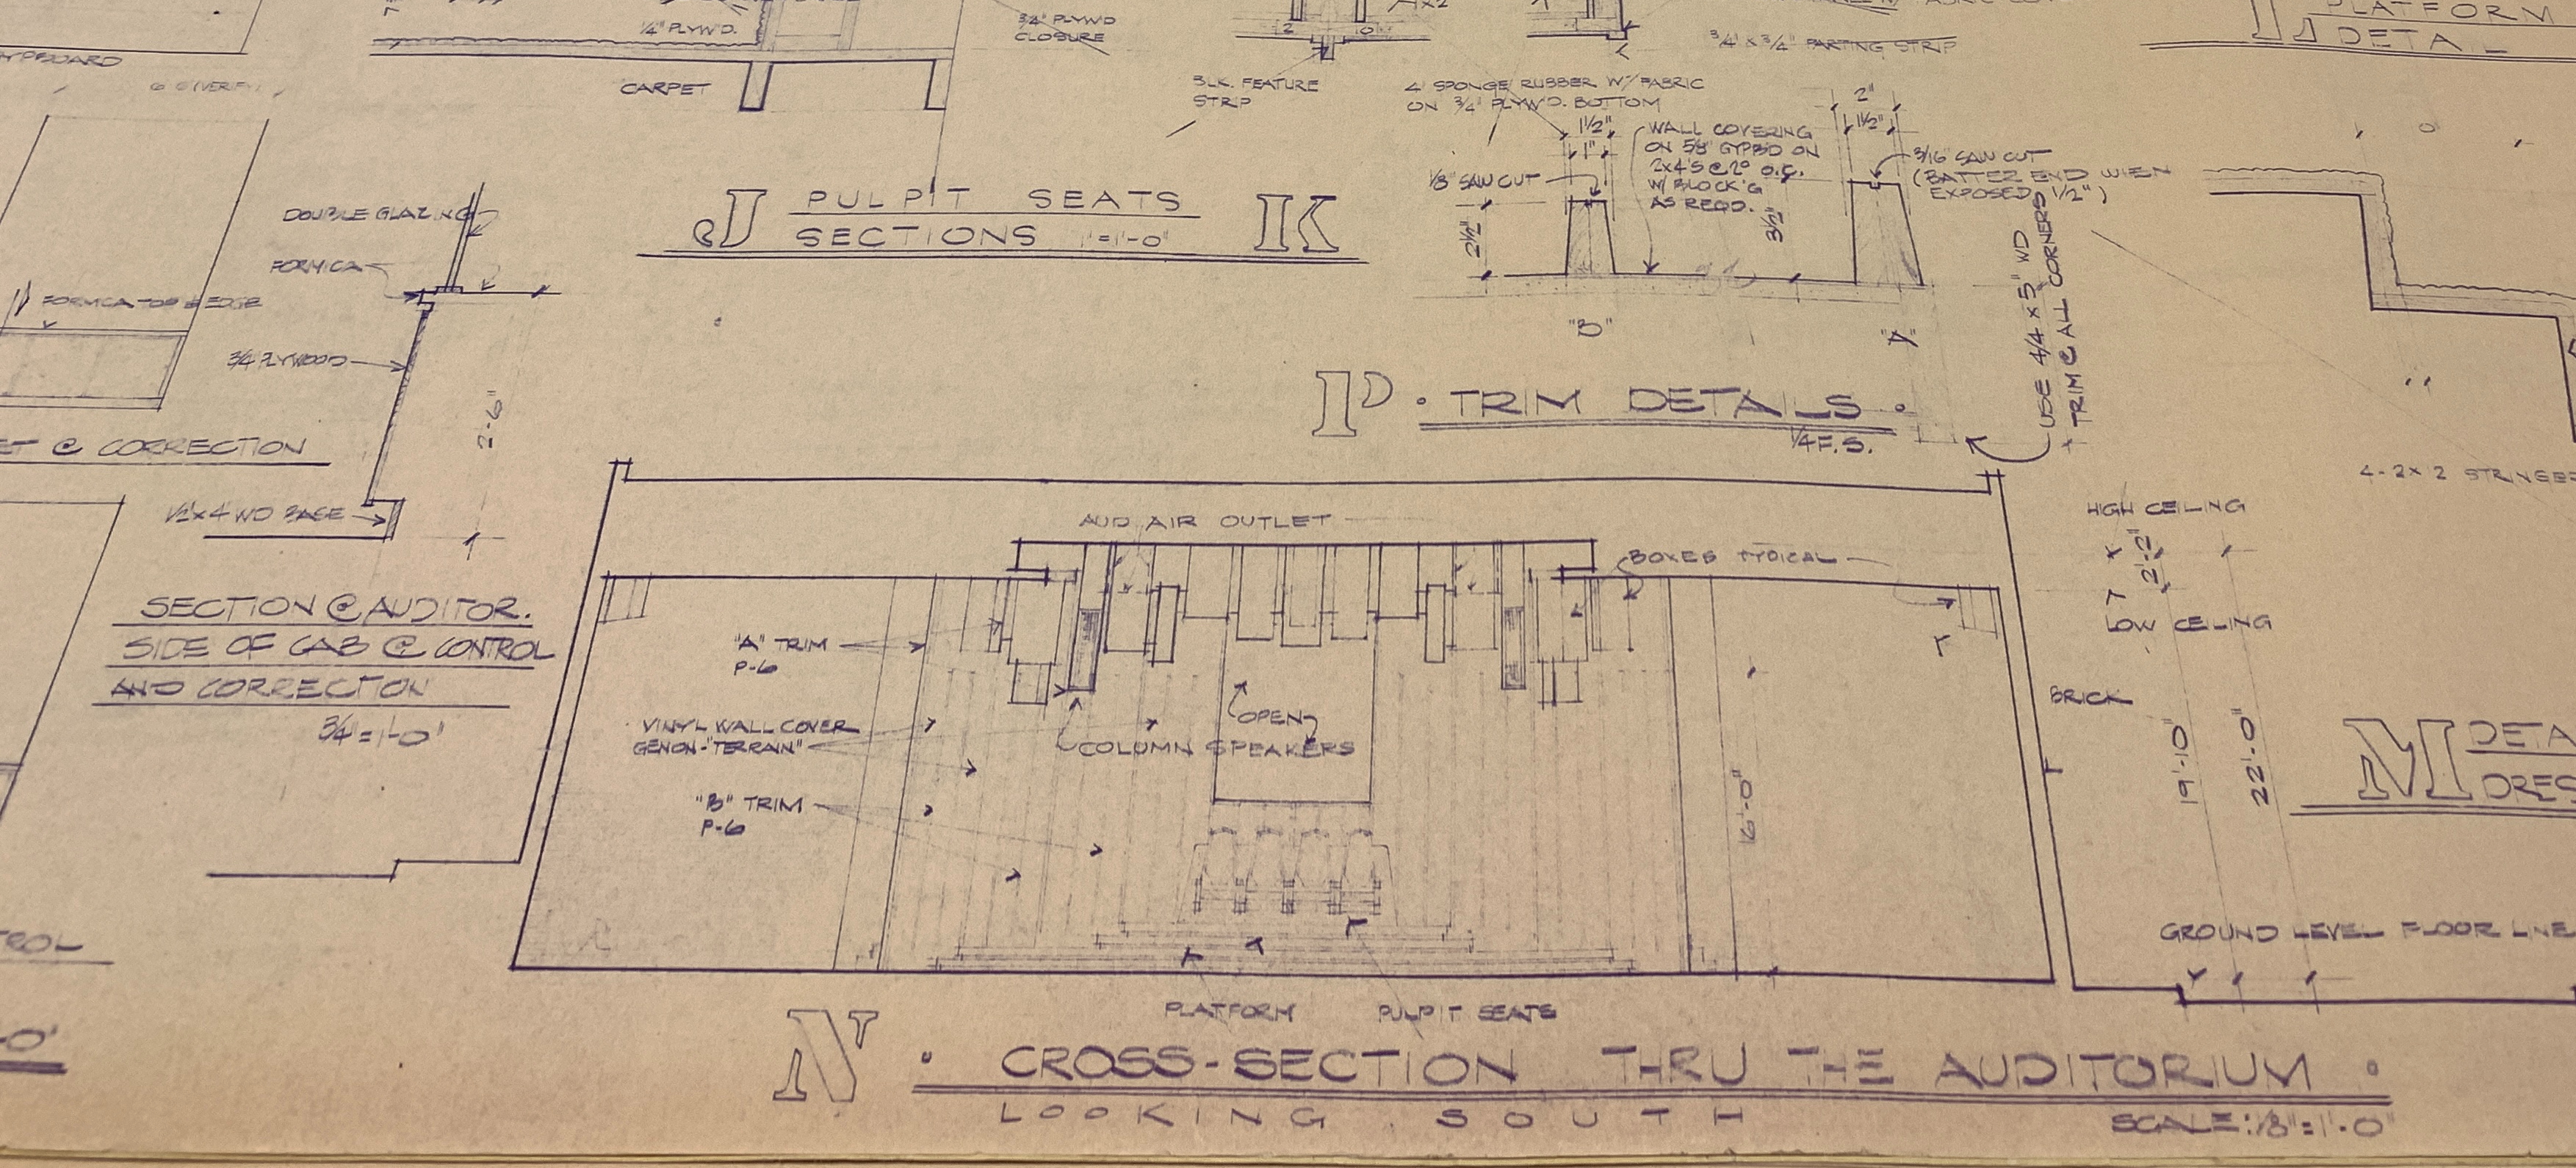 1/4" PLYWD.
3/4" PLYWD
CLOSURE
CARPET
BLK. FEATURE
STRIP
3/4" x 3/4" PARTING STRIP
PLATFORM
DETAIL
4" SPONGE RUBBER W/ FABRIC
ON 3/4" PLYWD. BOTTOM
1 1/2"
1"
1/8" SAW CUT
2 1/2"
WALL COVERING
ON 5/8" GYPB'D ON
2x4'S @ 2⁰ O.C.
W/ BLOCK'G
AS REQD.
3 1/2"
2"
1 1/2"
3/16" SAW CUT
(BATTER END WHEN
EXPOSED 1/2")
"B"
"A"
USE 4/4 x 5" WD
TRIM @ ALL CORNERS
P • TRIM DETAILS •
1/4 F.S.
J PULPIT SEATS K
SECTIONS 1"=1'-0"
DOUBLE GLAZING
FORMICA
FORMICA TOP & EDGE
3/4 PLYWOOD
2'-6"
@ CORRECTION
1/2 x 4 WD BASE
SECTION @ AUDITOR.
SIDE OF CAB @ CONTROL
AND CORRECTION
3/4"=1'-0"
AUD AIR OUTLET
BOXES TYPICAL
"A" TRIM
P-6
VINYL WALL COVER
GENON-"TERRAIN"
"B" TRIM
P-6
OPEN
COLUMN SPEAKERS
16'-0"
4-2x2 STRINGER
HIGH CEILING
2'-2"
LOW CEILING
BRICK
19'-10"
22'-0"
M DETA
DRES
GROUND LEVEL FLOOR LINE
PLATFORM
PULPIT SEATS
N • CROSS-SECTION THRU THE AUDITORIUM •
LOOKING SOUTH
SCALE: 1/8"=1'-0"